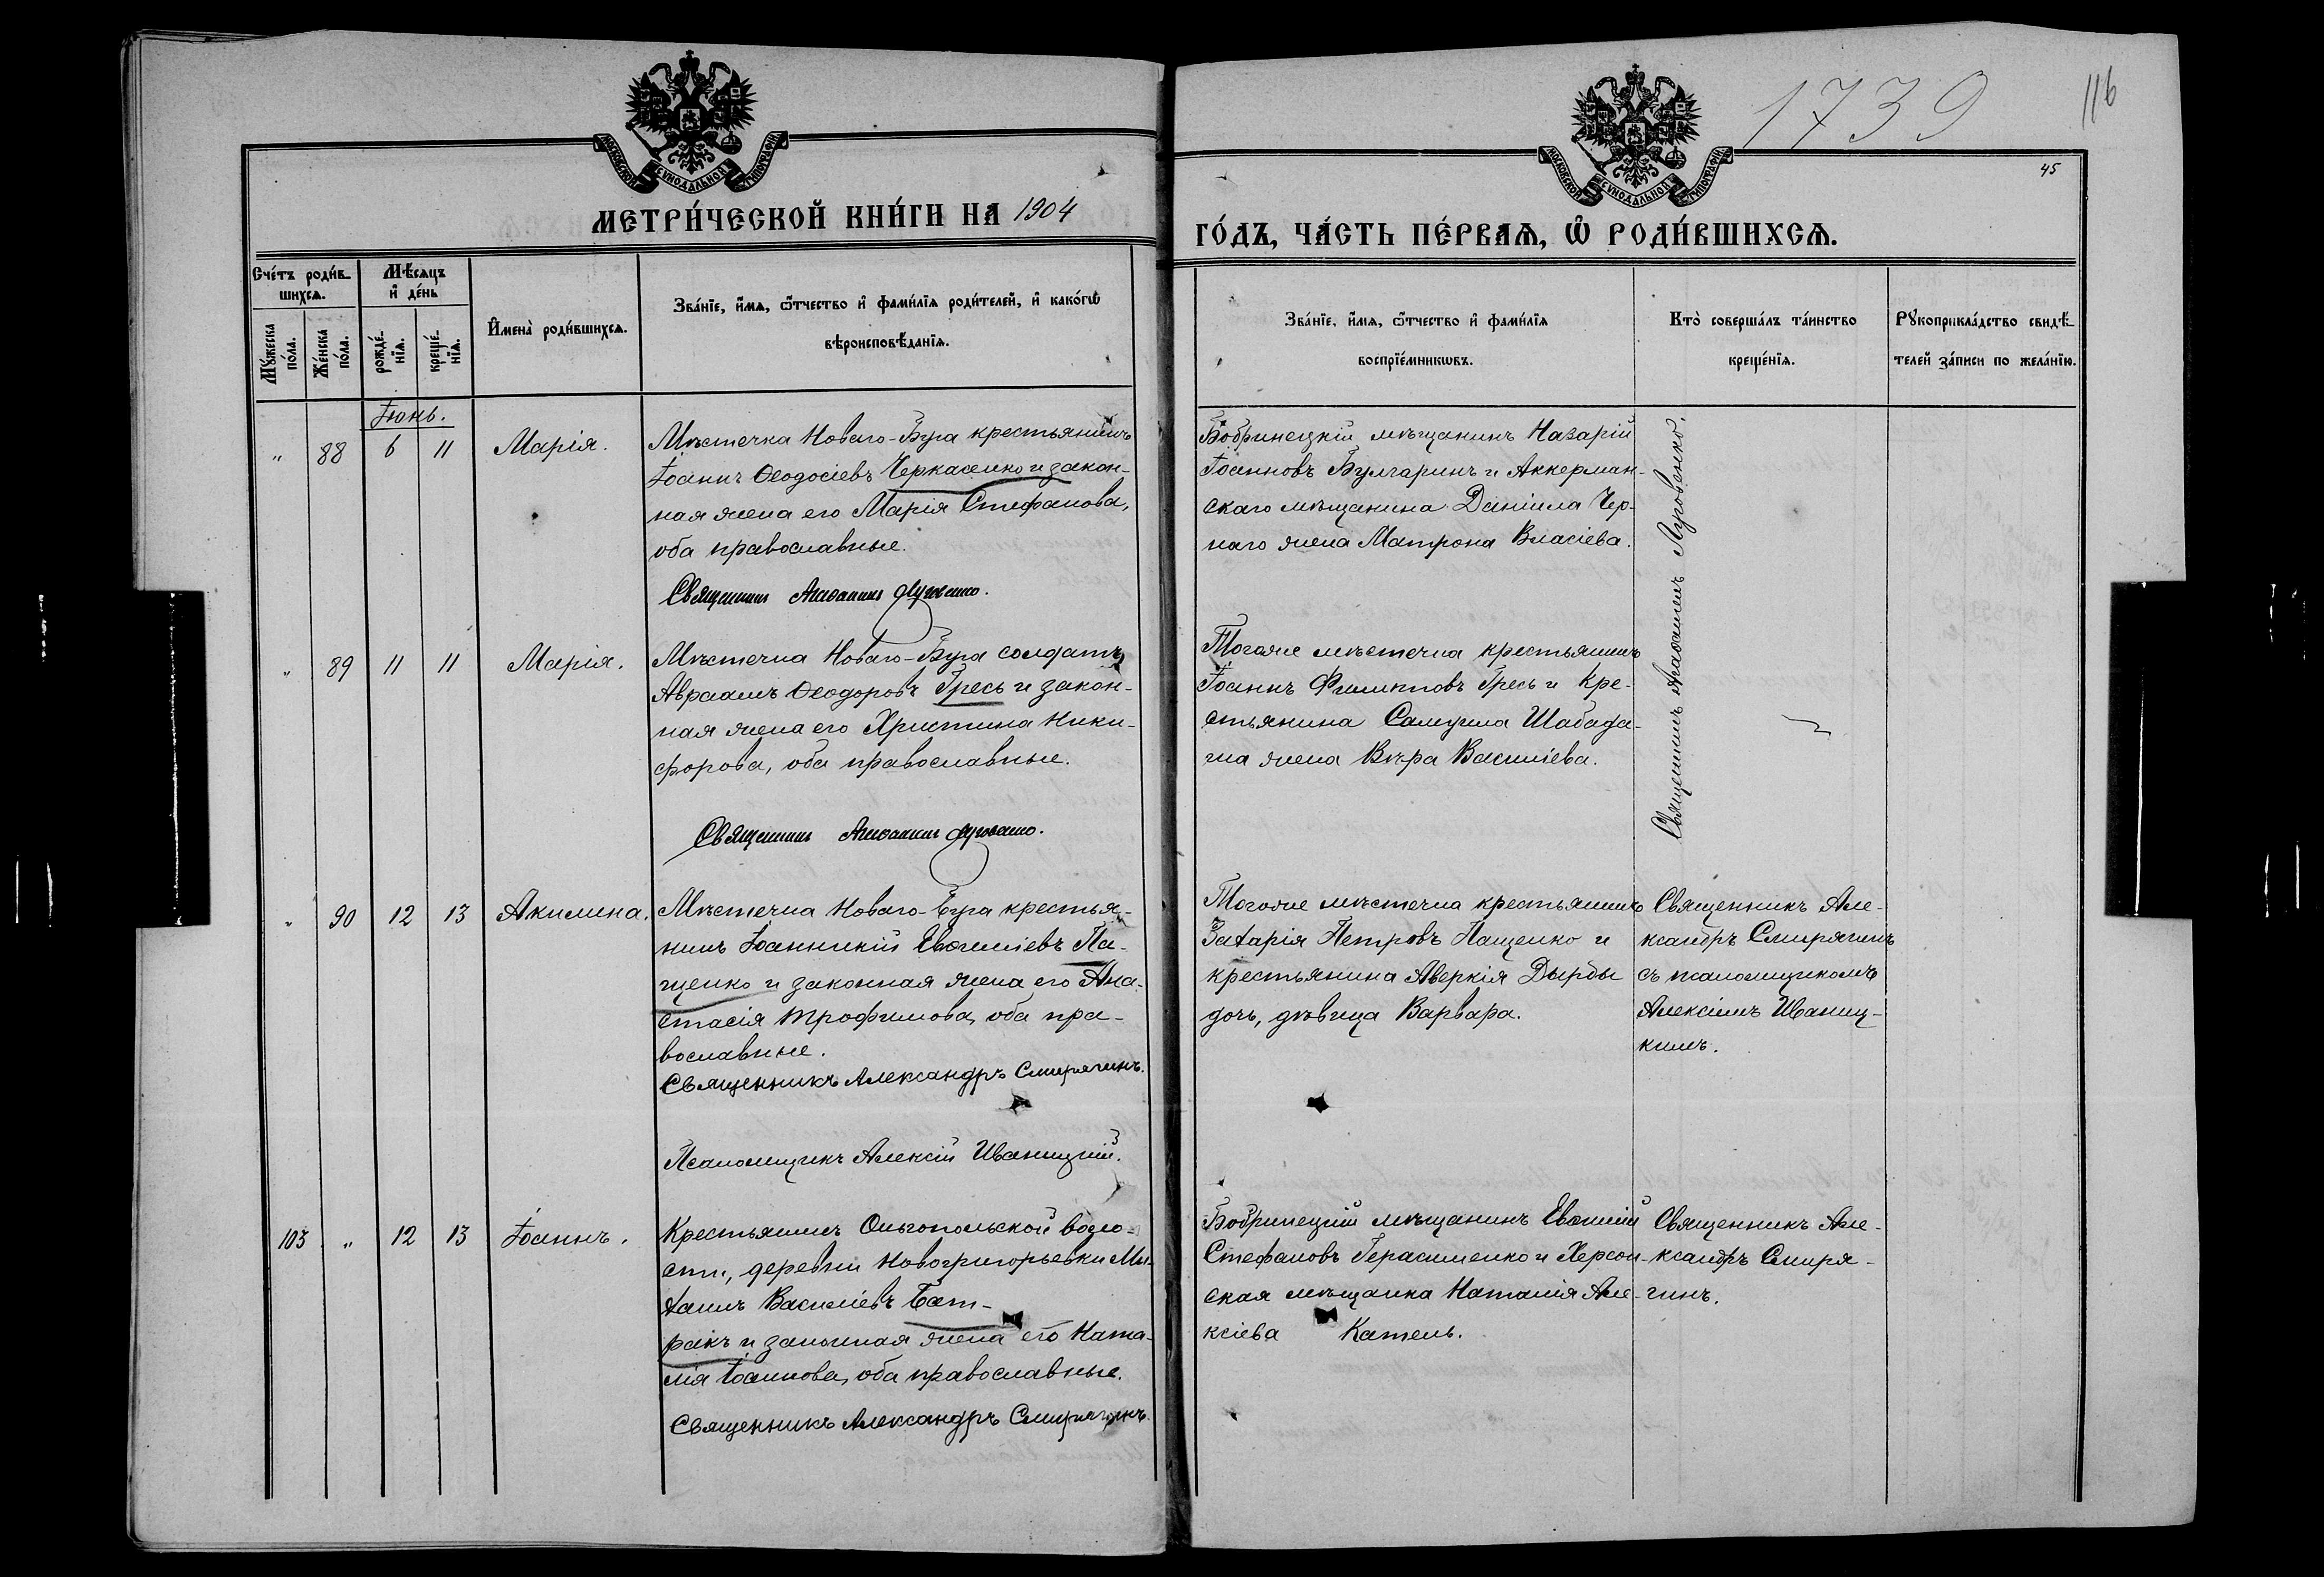 1739
116
45
МОСКОВСКОЙ СѴНОДАЛЬНОЙ ТИПОГРАФІИ
МОСКОВСКОЙ СѴНОДАЛЬНОЙ ТИПОГРАФІИ
МЕТРИ́ЧЕСКОЙ КНИ́ГИ НА 1904
ГО́ДЪ, ЧА́СТЬ ПЕ́РВАѦ, Ѡ҆ РОДИ́ВШИХСѦ.
Сче́тъ роди́в-
шихсѧ.
Мѣ́сяцъ
и҆ де́нь
Мꙋ́жеска
по́ла.
Же́нска
по́ла.
рожде́-
нїѧ.
креще́-
нїѧ.
И҆мена̀ роди́вшихсѧ.
Зва́нїе, и҆́мѧ, ѻ҆́тчество и҆ фами́лїѧ роди́телей, и҆ како́гѡ
вѣроисповѣ́данїѧ.
Зва́нїе, и҆́мѧ, ѻ҆́тчество и҆ фами́лїѧ
воспрїе́мникѡвъ.
Кто̀ соверша́лъ та́инство
креще́нїѧ.
Рꙋкоприкла́дство свидѣ́-
телей за́писи по жела́нїю.
Іюнь.
" 88 6 11 Марія.
Мѣстечка Новаго-Буга крестьянинъ
Іоаннъ Ѳеодосіевъ Черкасенко и закон-
ная жена его Марія Стефанова,
оба православные.
Священникъ Аѳанасій Луговенко.
Бобринецкій мѣщанинъ Назарій
Іоанновъ Булгаринъ и Аккерман-
скаго мѣщанина Даніила Чер-
наго жена Матрона Власіева.
Священникъ Луговенко.
" 89 11 11 Марія.
Мѣстечка Новаго-Буга солдатъ
Авраамъ Ѳеодоровъ Гресь и закон-
ная жена его Христина Ники-
форова, оба православные.
Священникъ Луговенко.
Тогоже мѣстечка крестьянинъ
Іоаннъ Филипповъ Гресь и кре-
стьянина Самуила Шабада-
ша жена Вѣра Василіева.
" 90 12 13 Акилина.
Мѣстечка Новаго-Буга крестья-
нинъ Іоанникій Евѳиміевъ Па-
щенко и законная жена его Ана-
стасія Трофимова, оба пра-
вославные.
Священникъ Александръ Смирягинъ.
Псаломщикъ Алексій Иваницкій.
Тогоже мѣстечка крестьянинъ
Захарія Петровъ Пащенко и
крестьянина Аверкія Дырды
дочь, дѣвица Варвара.
Священникъ Але-
ксандръ Смирягинъ
съ псаломщикомъ
Алексіемъ Иваниц-
кимъ.
103 " 12 13 Іоаннъ.
Крестьянинъ Ольгопольской воло-
сти, деревни Новогригорьевки Ми-
хаилъ Василіевъ Бат-
ракъ и законная жена его Ната-
лія Іоаннова, оба православные.
Священникъ Александръ Смирягинъ.
Бобринецкій мѣщанинъ Евѳимій
Стефановъ Герасименко и Херсон-
ская мѣщанка Наталія Але-
ксіева Катель.
Священникъ Але-
ксандръ Смиря-
гинъ.